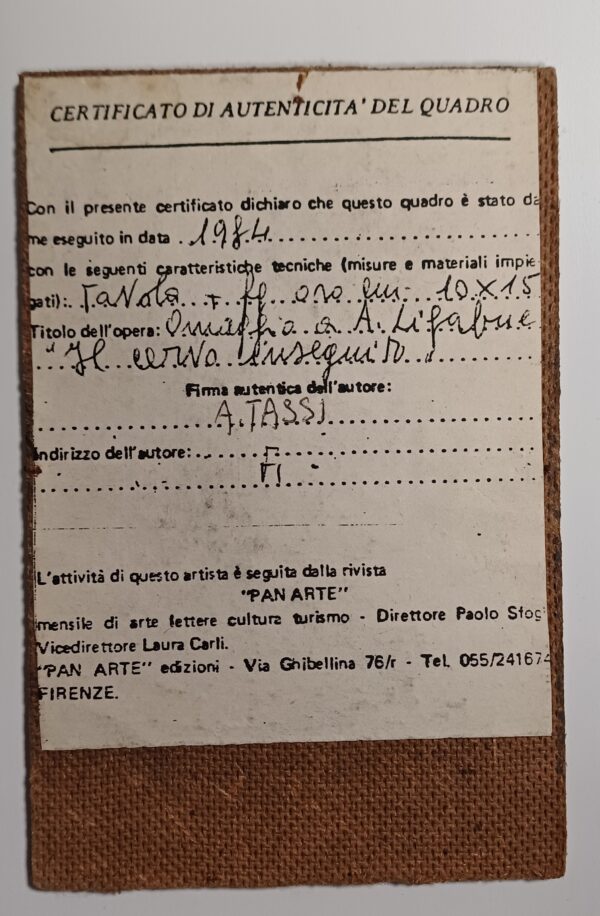 CERTIFICATO DI AUTENTICITA' DEL QUADRO
Con il presente certificato dichiaro che questo quadro è stato da
me eseguito in data . 1984
con le seguenti caratteristiche tecniche (misure e materiali impie-
gati): Tavola + ff oro cm 10x15
Titolo dell'opera: Omaggio a A. Ligabue
"Il cervo inseguito"
Firma autentica dell'autore:
A. TASSI
Indirizzo dell'autore:
FI
L'attività di questo artista è seguita dalla rivista
"PAN ARTE"
mensile di arte lettere cultura turismo - Direttore Paolo
Vicedirettore Laura Carli.
"PAN ARTE" edizioni - Via Ghibellina 76/r - Tel. 055/241674
FIRENZE.